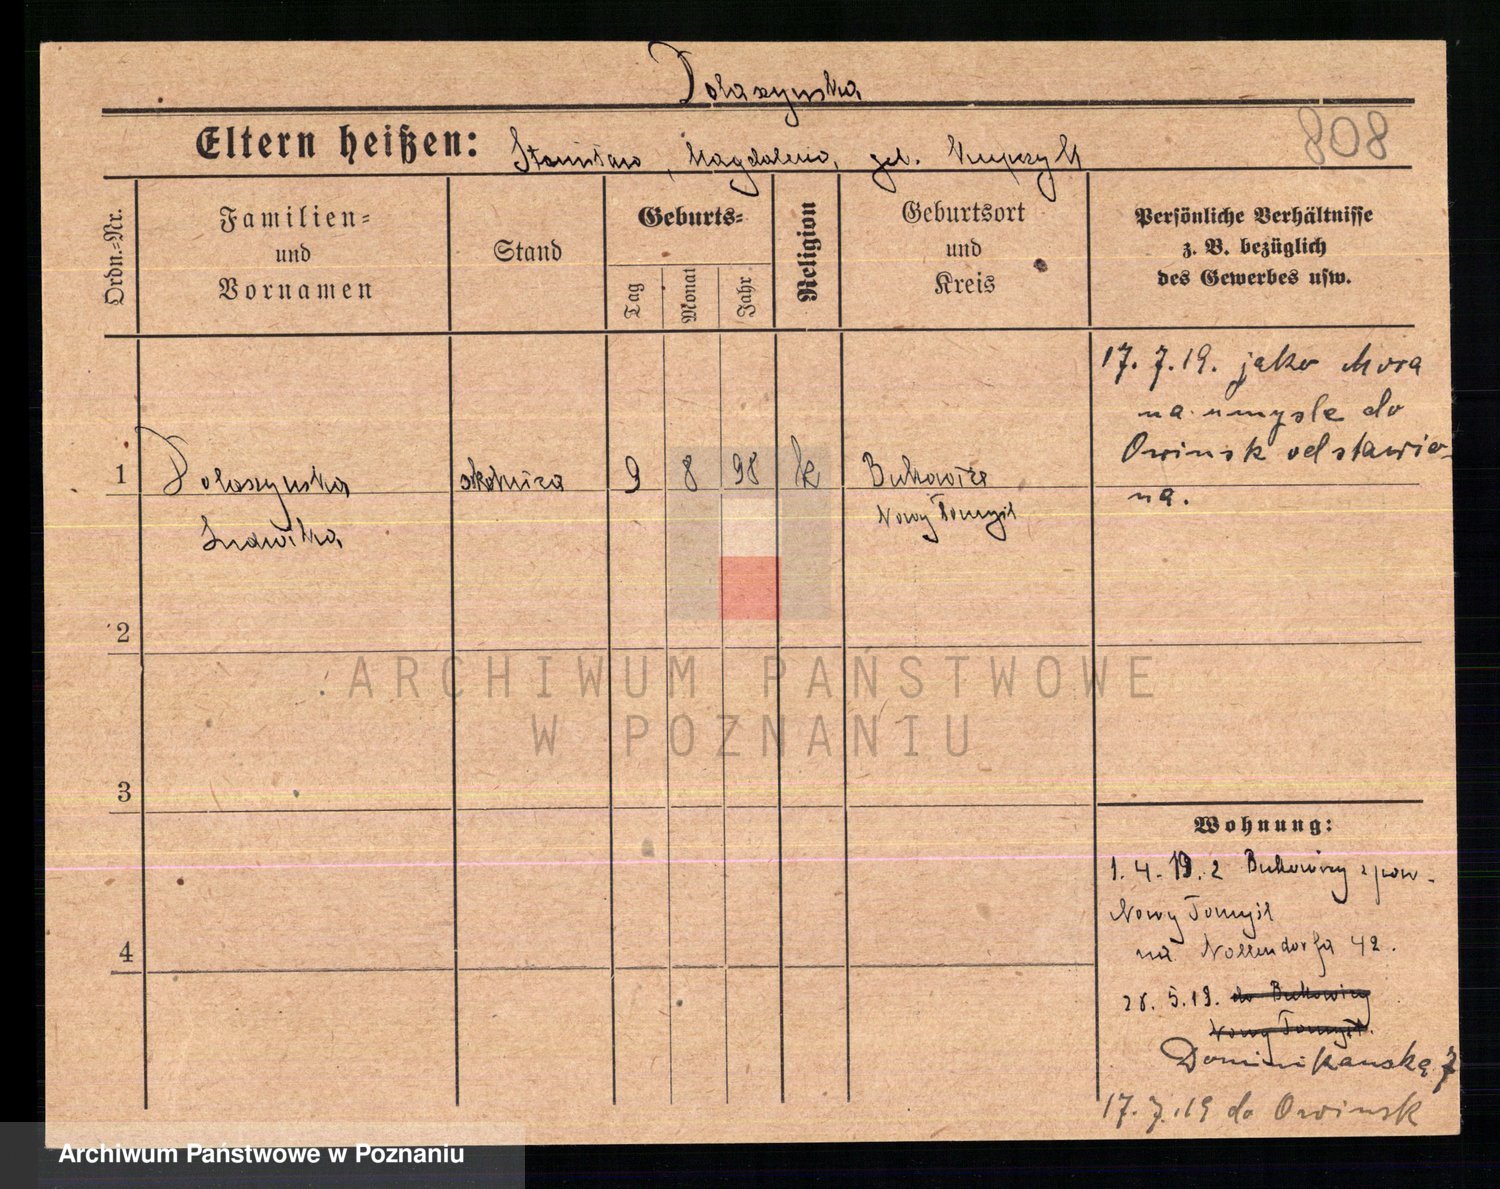 Dolaszynska
Eltern heißen: Stanisław, Magdalena, geb. Krupczyk
808
Ordn.=Nr.
Familien=
und
Vornamen
Stand
Geburts=
Tag
Monat
Jahr
Religion
Geburtsort
und
Kreis
Persönliche Verhältnisse
z. B. bezüglich
des Gewerbes usw.
17. 7. 19. jako chora
na umyśle do
Owinsk odstawio-
na.
1
Dolaszynska
Ludwika
9
8
98
k
Nowy Tomyśl
2
ARCHIWUM PAŃSTWOWE
W POZNANIU
3
Wohnung:
1. 4. 19. z Bukowiny z pow.
Nowy Tomyśl
na Nollendorfa 42.
28. 5. 19. do Bukowiny
Nowy Tomyśl.
Dominikanską 7
17. 7. 19 do Owinsk
4
Archiwum Państwowe w Poznaniu